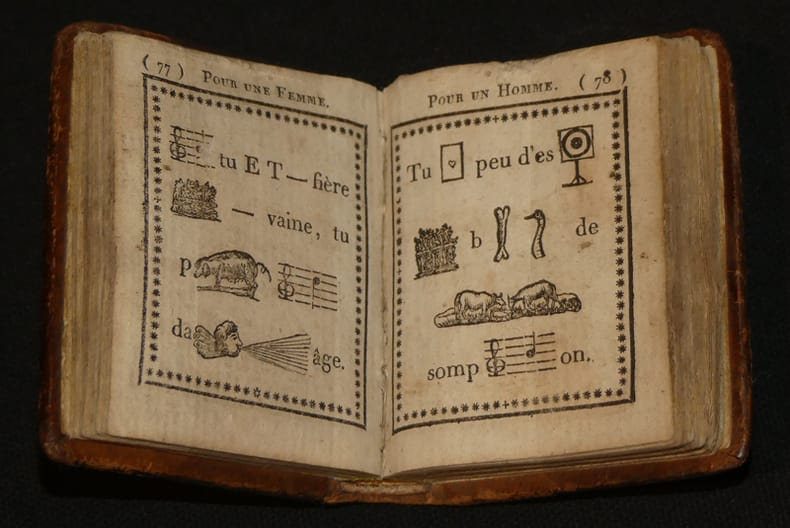 ( 77 ) POUR UNE FEMME.
tu E T — fière
— vaine, tu
P
da âge.
POUR UN HOMME. ( 78 )
Tu peu d'es
b de
somp on.